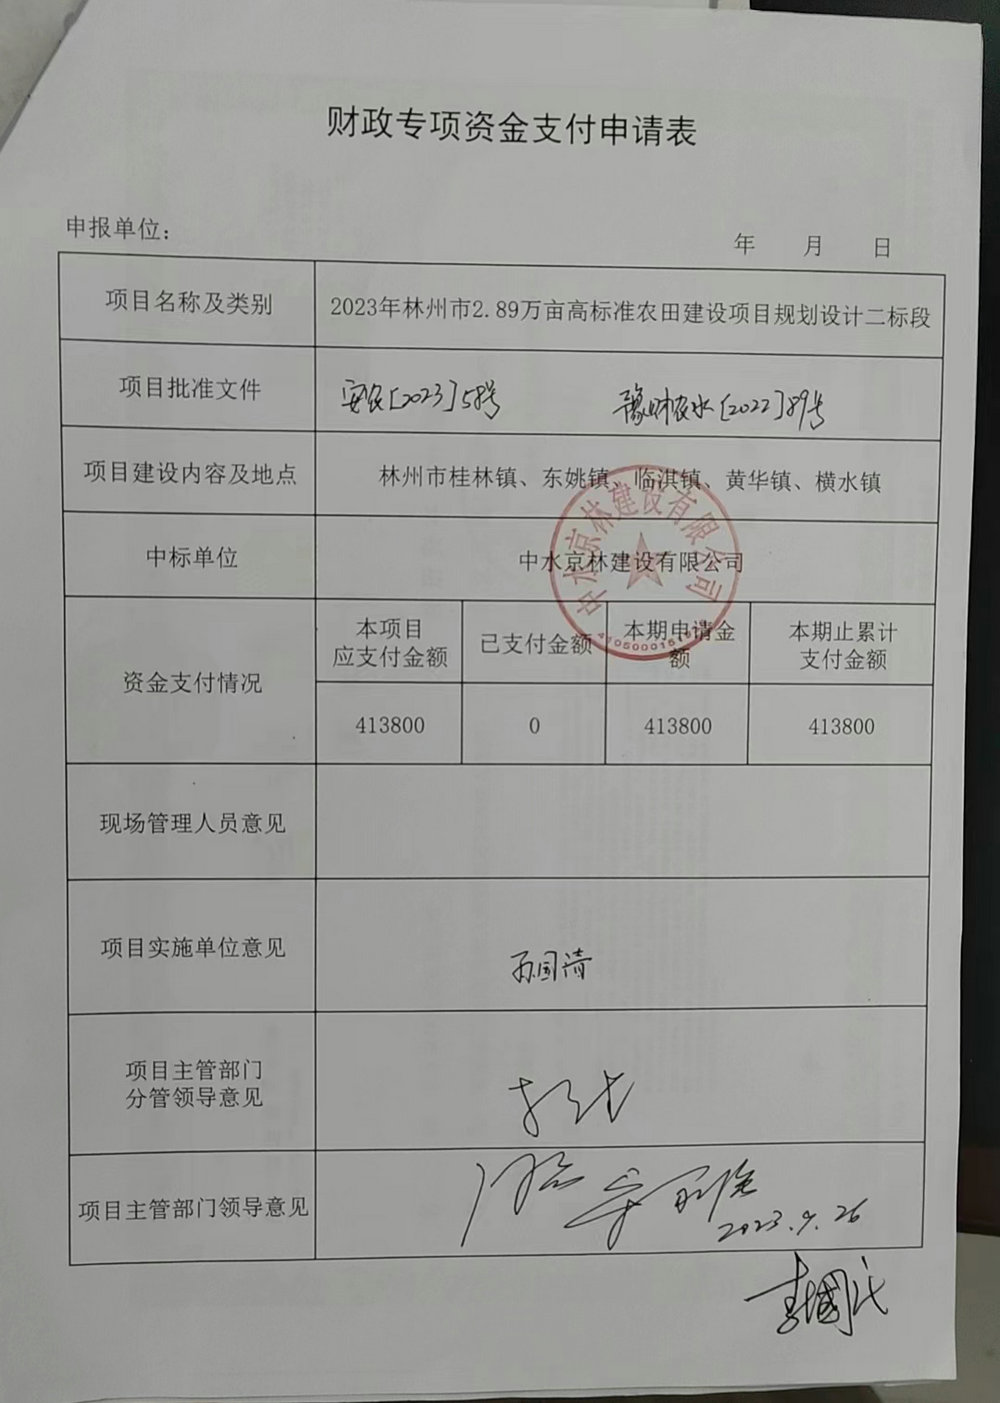 财政专项资金支付申请表
申报单位： 年 月 日
项目名称及类别 2023年林州市2.89万亩高标准农田建设项目规划设计二标段
项目批准文件 安农[2023]58号 豫财农水[2022]89号
项目建设内容及地点 林州市桂林镇、东姚镇、临淇镇、黄华镇、横水镇
中标单位 中水京林建设有限公司
中水京林建设有限公司
资金支付情况
本项目
应支付金额
已支付金额
本期申请金
额
本期止累计
支付金额
413800 0 413800 413800
现场管理人员意见
项目实施单位意见 国清
项目主管部门
分管领导意见
项目主管部门领导意见
2023.9.26
李国